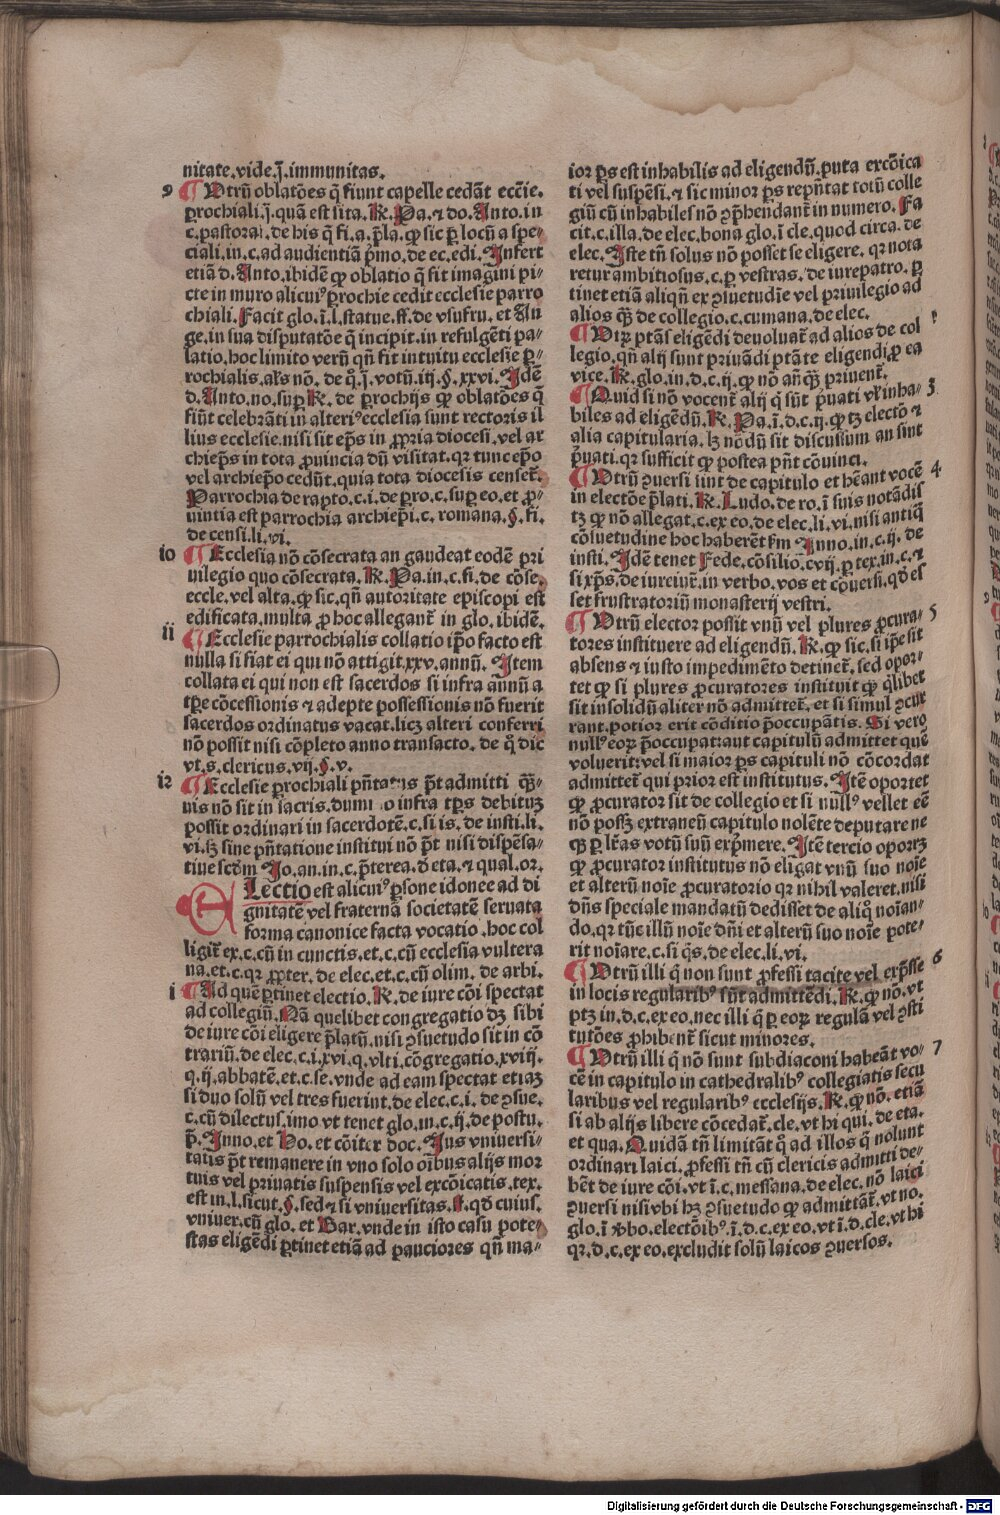 nitate.vide.j̄.immunitas.
9 ¶ Vtrū oblatōes q̄ fiunt capelle cedāt ecc̄ie.
ꝑrochiali.j̄.quā est sita. R̄. Pa.⁊ do. Anto. in
c.pastoral.de his q̄ fi.a.p̄la.ꝙ sic ꝑ locū a spe-
ciali.in.c.ad audientiā p̄mo.de ec.edi. Infert
etiā d. Anto.ibidē ꝙ oblatio q̄ fit imagini pi-
cte in muro alicuiꝰ ꝑrochie cedit ecclesie parro
chiali. Facit glo.ī.l.statue.ff.de vsufru.et An
ge.in sua disputatōe q̄ incipit.in refulgēti pa-
latio.hoc limito verū qn̄ fit intuitu ecclesie ꝑ-
rochialis.al's nō.de q̊.j̄.votū.iij.§.xxvi. Idē
d. Anto.no.suꝑ R̄.de ꝑrochijs ꝙ oblatōes q̄
fiūt celebrāti in alteriꝰ ecclesia sunt rectoris il
lius ecclesie.nisi sit ep̄s in ꝓpria diocesi.vel ar
chiep̄s in tota ꝓuincia dū visitat.qꝛ tunc ep̄o
vel archiep̄o cedūt.quia tota diocesis censet̄.
Parrochia de rapto.c.i.de ꝑro.c.suꝑ eo.et ꝓ-
uintia est parrochia archiep̄i.c.romana.§.fi.
de censi.li.vi.
io ¶ Ecclesia nō cōsecrata an gaudeat eodē pri
uilegio quo cōsecrata. R̄. Pa.in.c.fi.de cōse.
eccle.vel alta.ꝙ sic.qn̄ autoritate episcopi est
edificata.multa ꝓ hoc allegant̄ in glo.ibidē.
ii ¶ Ecclesie parrochialis collatio ip̄o facto est
nulla si fiat ei qui nō attigit.xxv.annū. Item
collata ei qui non est sacerdos si infra annū a
tꝑe cōcessionis ⁊ adepte possessionis nō fuerit
sacerdos ordinatus vacat.licꝫ alteri conferri
nō possit nisi cōpleto anno transacto.de q̊ dic
vt.s.clericus.vij.§.v.
i2 ¶ Ecclesie ꝑrochiali pn̄tatus p̄t admitti qꝫ-
uis nō sit in sacris. o infra tꝑs debituꝫ
possit ordinari in sacerdotē.c.si is.de insti.li.
vi.sꝫ sine pn̄tatione institui nō p̄t nisi dispēsa-
tiue scd̄m Io.an.in.c.p̄terea.d̄ eta.⁊ qual.or.
Electio est alicuiꝰ ꝑsone idonee ad di
gnitatē vel fraternā societatē seruata
forma canonice facta vocatio.hoc col
ligit̄ ex.c.cū in cunctis.et.c.cū ecclesia vultera
na.et.c.qꝛ ꝓpter.de elec.et.c.cū olim.de arbi.
i ¶ Ad quē ꝑtinet electio. R̄.de iure cōi spectat
ad collegiū. Nā quelibet congregatio dꝫ sibi
de iure cōi eligere p̄latū.nisi ꝯsuetudo sit in cō
trariū.de elec.c.i.xvi.q.vlti.cōgregatio.xviij.
q.ij.abbatē.et.c.se.vnde ad eam spectat etiaꝫ
si duo solū vel tres fuerint.de elec.c.i.de ꝯsue.
c.cū dilectus.imo vt tenet glo.in.c.ij.de postu.
p̄. Inno.et Ho.et cōiter doc. Ius vniuersi-
tatis p̄t remanere in vno solo oībus alijs mor
tuis vel priuatis suspensis vel excōicatis.tex.
est in.l.sicut.§.sed ⁊ si vniuersitas.ff.qd̄ cuius.
vniuer.cū glo.et Bar.vnde in isto casu pote-
stas eligēdi ꝑtinet etiā ad pauciores qn̄ ma-
ior ꝑs est inhabilis ad eligendū.puta excōica
ti vel suspēsi.⁊ sic minor ꝑs repn̄tat totū colle
giū cū inhabiles nō ꝯp̄hendant̄ in numero. Fa
cit.c.illa.de elec.bona glo.ī cle.quod circa.de
elec. Iste tn̄ solus nō posset se eligere.qꝛ nota
retur ambitiosus.c.ꝑ vestras.de iurepatro.ꝑ
tinet etiā aliqn̄ ex ꝯsuetudīe vel priuilegio ad
alios qꝫ de collegio.c.cumana.de elec.
¶ Vtrꝫ ptās eligēdi deuoluat̄ ad alios de col
legio.qn̄ alij sunt priuādi ptāte eligendi.ꝓ ea
vice. R̄.glo.in.d.c.ij.ꝙ nō an̄ qꝫ priuent̄.
3 ¶ Quid si nō vocent̄ alij q̄ sūt p̄uati vl' inha-
biles ad eligēdū. R̄. Pa.ī.d.c.ij.ꝙ tꝫ electō ⁊
alia capitularia.lꝫ nōdū sit discussum an sint
p̄uati.qꝛ sufficit ꝙ postea pn̄t cōuinci.
4 ¶ Vtrū ꝯuersi sint de capitulo et hēant vocē
in electōe p̄lati. R̄. Ludo.de ro.ī suis notādis
tꝫ ꝙ nō allegat.c.ex eo.de elec.li.vi.nisi antiq̄
cōsuetudine hoc haberēt fm Inno.in.c.ij.de
insti. Idē tenet Fede.cōsilio.cvij.ꝑ tex.in.c.⁊
si xp̄s.de iureiur̄.in verbo.vos et cōuersi.qd̄ es
set frustratoriū monasterij vestri.
5 ¶ Vtrū elector possit vnū vel plures ꝓcura-
tores instituere ad eligendū. R̄.ꝙ sic.si ip̄e sit
absens ⁊ iusto impedimēto detinet̄.sed opor-
tet ꝙ si plures ꝓcuratores instituit ꝙ q̄libet
sit insolidū aliter nō admittet̄.et si simul ꝯcur
rant.potior erit cōditio p̄occupātis. Si vero
nullꝰ eoꝝ p̄occupat:aut capitulū admittet quē
voluerit:vel si maior ꝑs capituli nō cōcordat
admittet̄ qui prior est institutus. Itē oportet
ꝙ ꝓcurator sit de collegio et si nullꝰ vellet eē
nō possꝫ extraneū capitulo nolēte deputare ne
qꝫ ꝑ lr̄as votū suū exp̄mere. Itē tercio oportꝫ
ꝙ ꝓcurator institutus nō eligat vnū suo noīe
et alterū noīe ꝓcuratorio qꝛ nihil valeret.nisi
dn̄s speciale mandatū dedisset de aliq̊ noīan-
do.qꝛ tūc illū noīe dn̄i et alterū suo noīe pote-
rit noīare.c.si q̄s.de elec.li.vi.
6 ¶ Vtrū illi q̄ non sunt ꝓfessi tacite vel exp̄sse
in locis regularibꝰ sūt admittēdi. R̄.ꝙ nō.vt
ptꝫ in.d.c.ex eo.nec illi q̄ ꝑ eoꝝ regulā vel ꝯsti
tutōes ꝓhibent̄ sicut minores.
7 ¶ Vtrū illi q̄ nō sunt subdiaconi habeāt vo-
cē in capitulo in cathedralibꝰ collegiatis secu
laribus vel regularibꝰ ecclesijs. R̄.ꝙ nō.etiā
si ab alijs libere cōcedat̄.cle.vt hi qui.de eta.
et qua. Quidā tn̄ limitāt q̊ ad illos q̄ nolunt
ordinari laici.ꝓfessi tn̄ cū clericis admitti de-
bēt de iure cōi.vt ī.c.messana.de elec.nō laici
ꝯuersi nisi vbi hꝫ ꝯsuetudo ꝙ admittāt̄.vt no.
glo.ī ꝟbo.electōibꝰ.ī.d.c.ex eo.vt ī.d.cle.vt hi
qꝛ.d.c.ex eo.excludit solū laicos ꝯuersos.
Digitalisierung gefördert durch die Deutsche Forschungsgemeinschaft - DFG